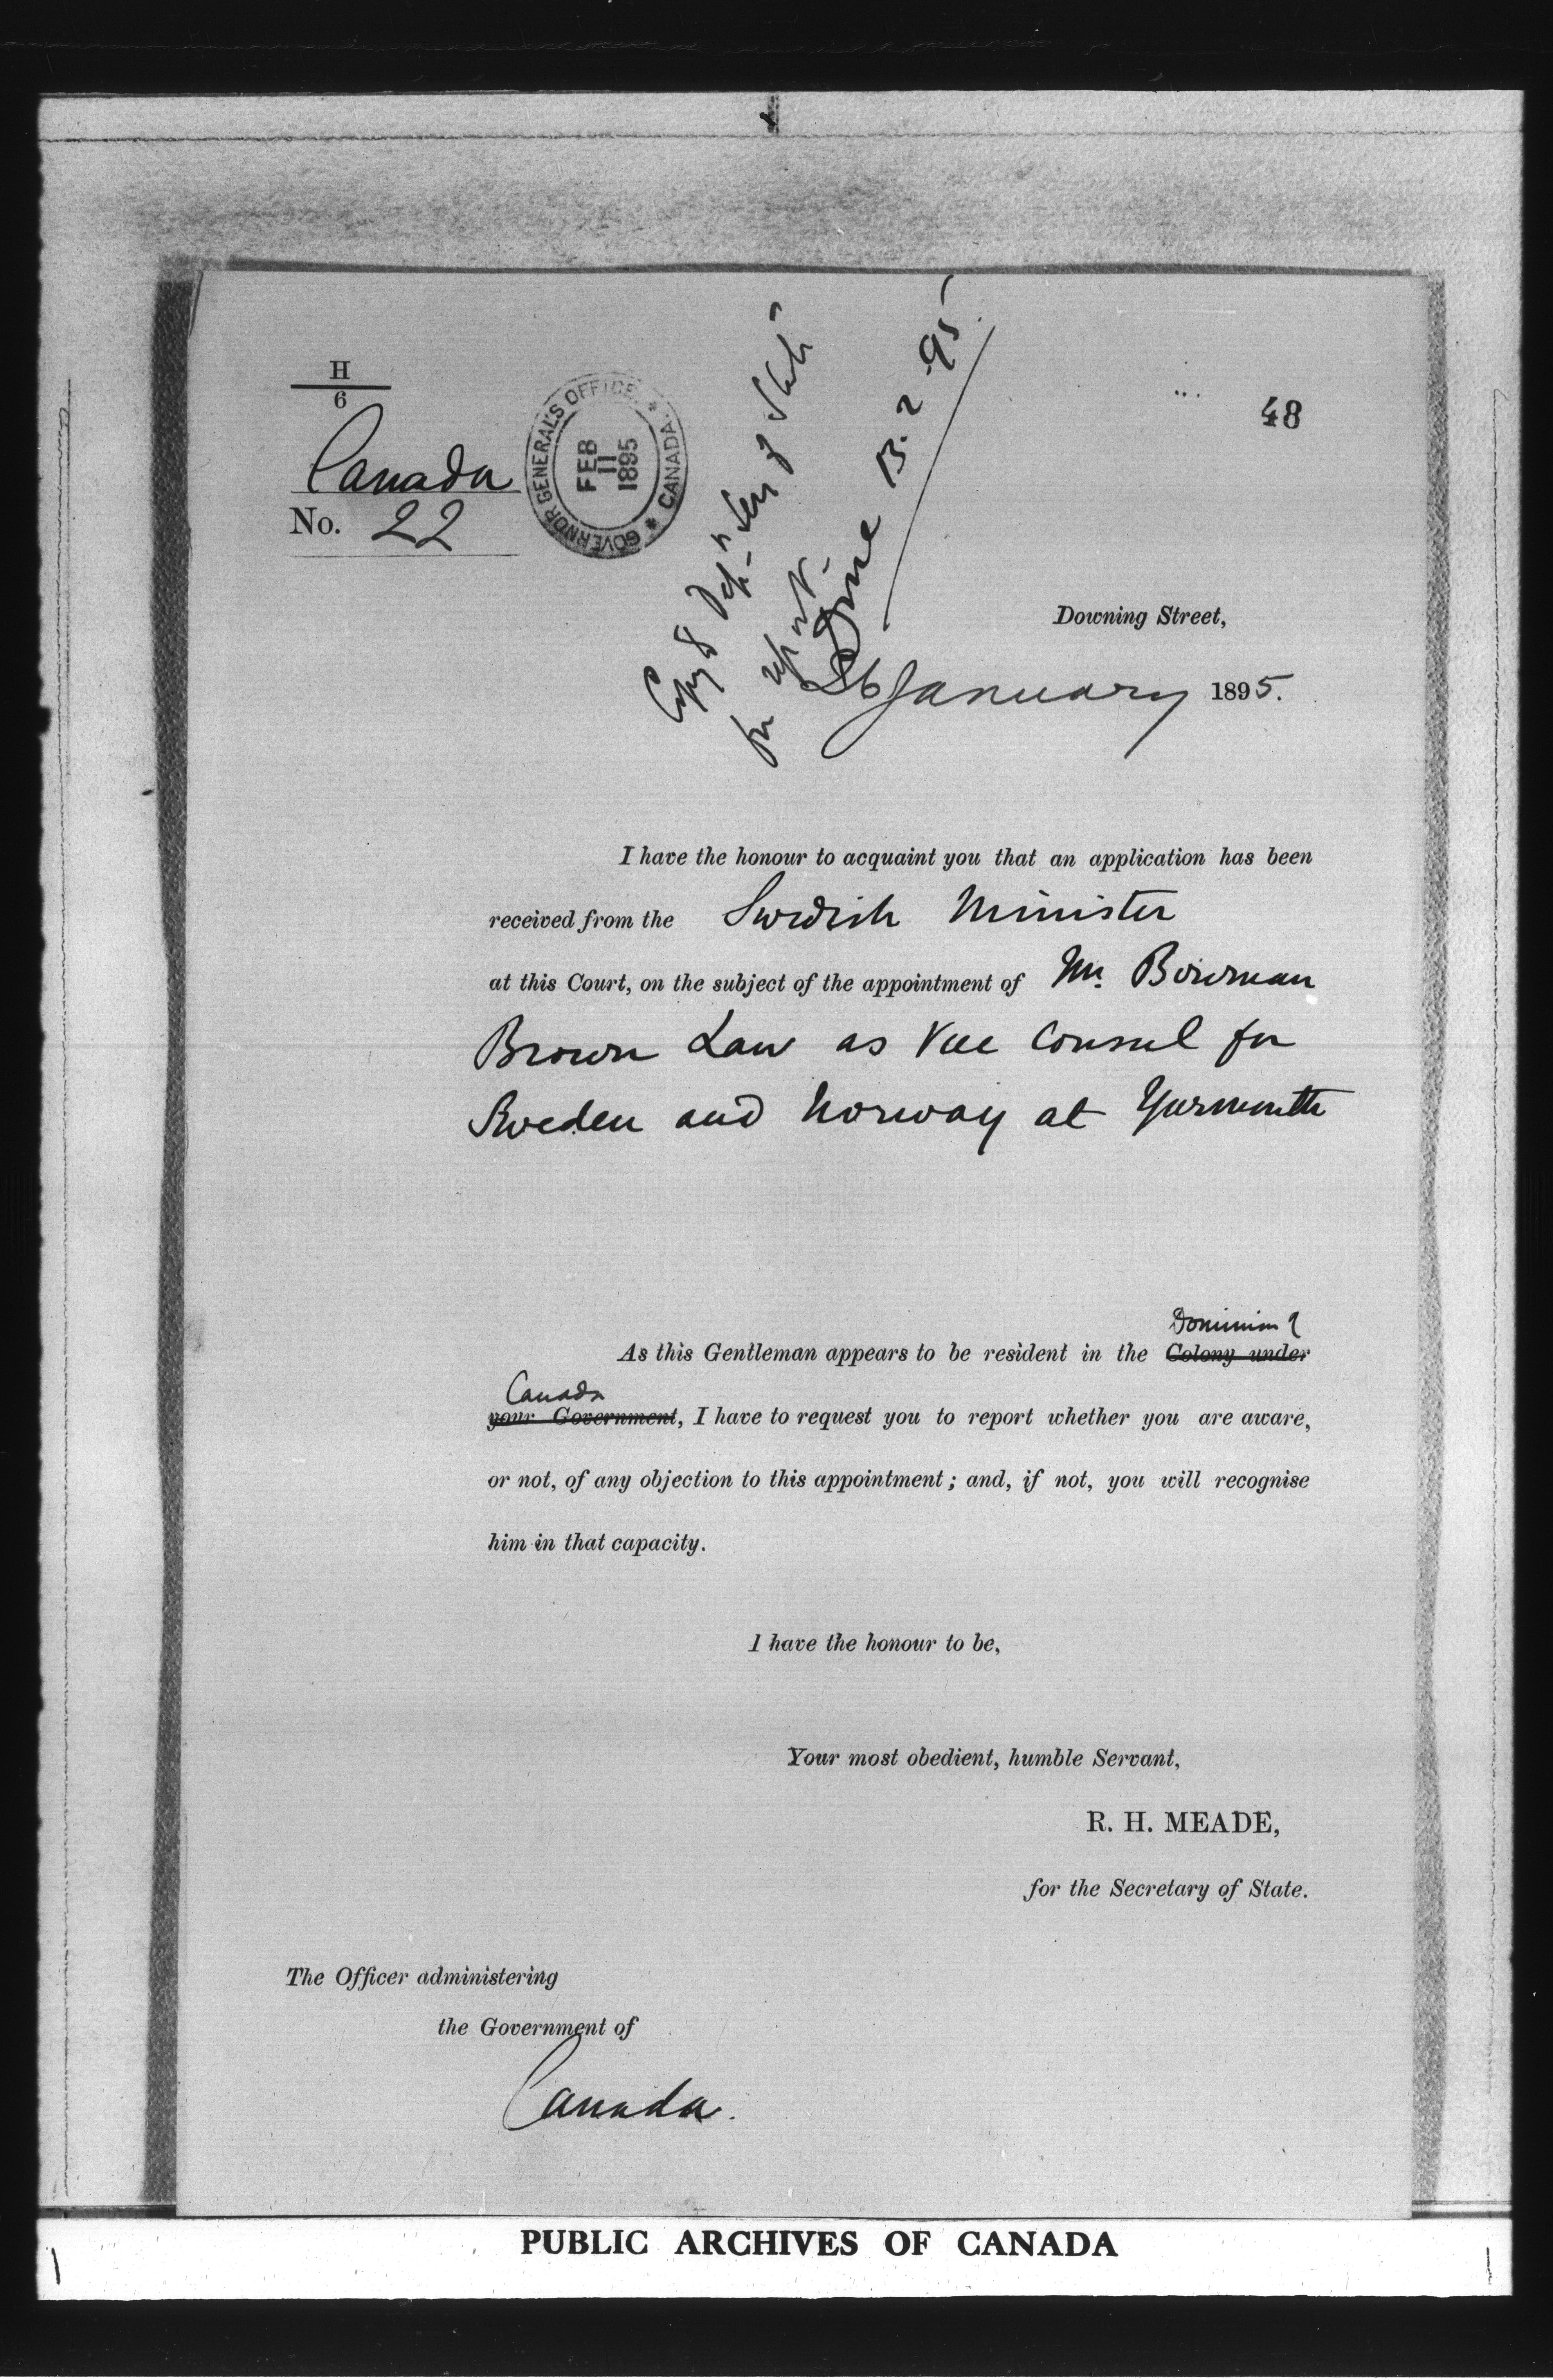 H
6
Canada
No. 22
GOVERNOR GENERAL'S OFFICE. * CANADA. *
FEB
11
1895
Copy to Dept. Secy of State
for report
Done 13.2.95
48
Downing Street,
26 January 1895.
I have the honour to acquaint you that an application has been
received from the Swedish Minister
at this Court, on the subject of the appointment of Mr. Bowman
Brown Law as Vice Consul for
Sweden and Norway at Yarmouth
Dominion of
As this Gentleman appears to be resident in the Colony under
Canada
your Government, I have to request you to report whether you are aware,
or not, of any objection to this appointment; and, if not, you will recognise
him in that capacity.
I have the honour to be,
Your most obedient, humble Servant,
R. H. MEADE,
for the Secretary of State.
The Officer administering
the Government of
Canada.
PUBLIC ARCHIVES OF CANADA